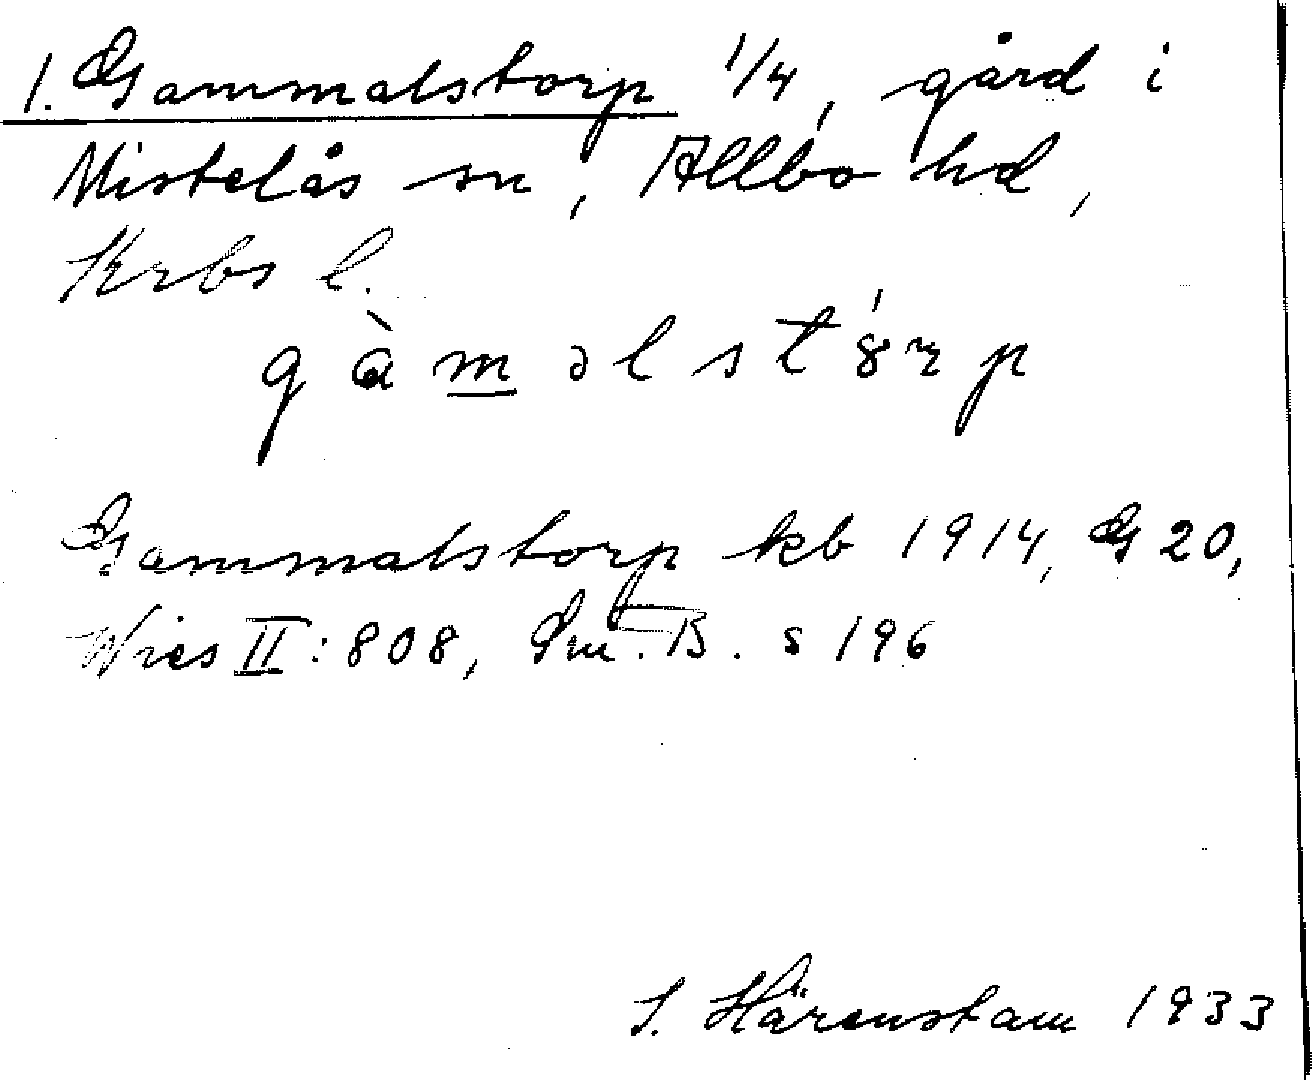 1. Gammalstorp 1/4, gård i
Mistelås sn, Allbo hd,
Krbs l.
gàməlstórp
Gammalstorp kb 1914, G 20,
Wies II:808, Sm. B. s 196
S. Härenstam 1933